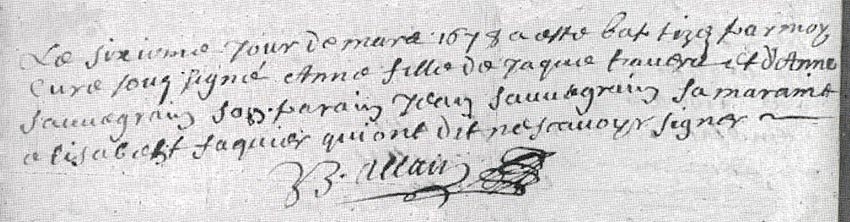 Le sixieme jour de mars 1678 a este baptizé par moy
Curé sousigné Anne fille de Jaque travers et d'Anne
Sauvegrain son parain Jean Sauvegrain sa maraine
elisabeht Jaquier qui ont dit ne scavoyr signer
B. Allain